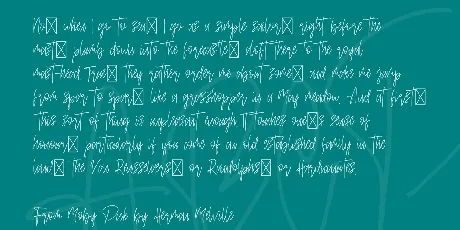 No▯ when I go to sea▯ I go as a simple sailor▯ right before the
mast▯ plumb down into the forecastle▯ aloft there to the royal
mast-head True▯ they rather order me about some▯ and make me jump
from spar to spar▯ like a grasshopper in a May meadow. And at first▯
this sort of thing is unpleasant enough It touches one▯s sense of
honour▯ particularly if you come of an old established family in the
land▯ the Van Rensselaers▯ or Randolphs▯ or Hardicanutes.
From Moby Dick by Herman Melville